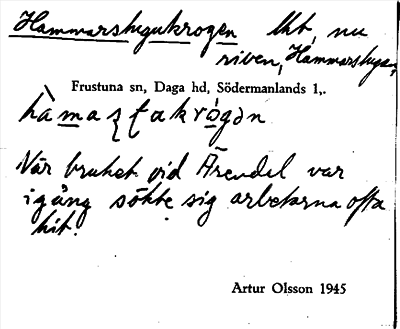 Hammarstugukrogen lht, nu
riven, Hammarstugan,
Frustuna sn, Daga hd, Södermanlands l,.
När bruket vid Ärendel var
igång sökte sig arbetarna ofta
hit.
Artur Olsson 1945